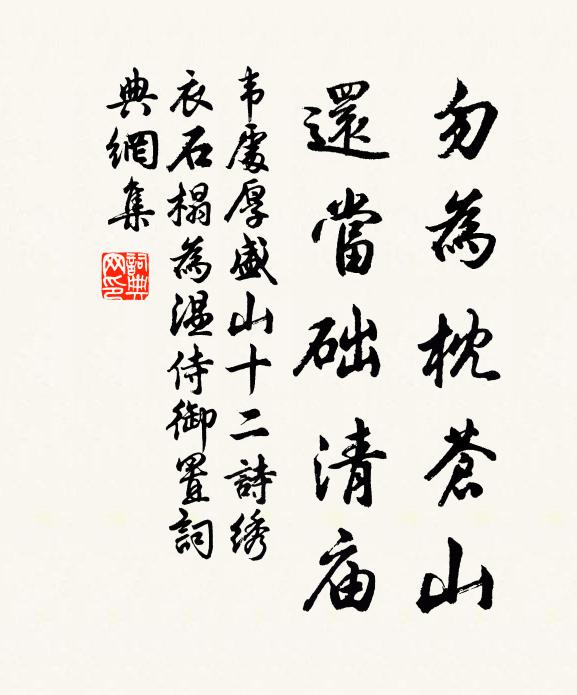 勿為枕蒼山
還當础清庙
韦處厚盛山十二詩绣
衣石榻為温侍御置詞
典網集
詞典网印